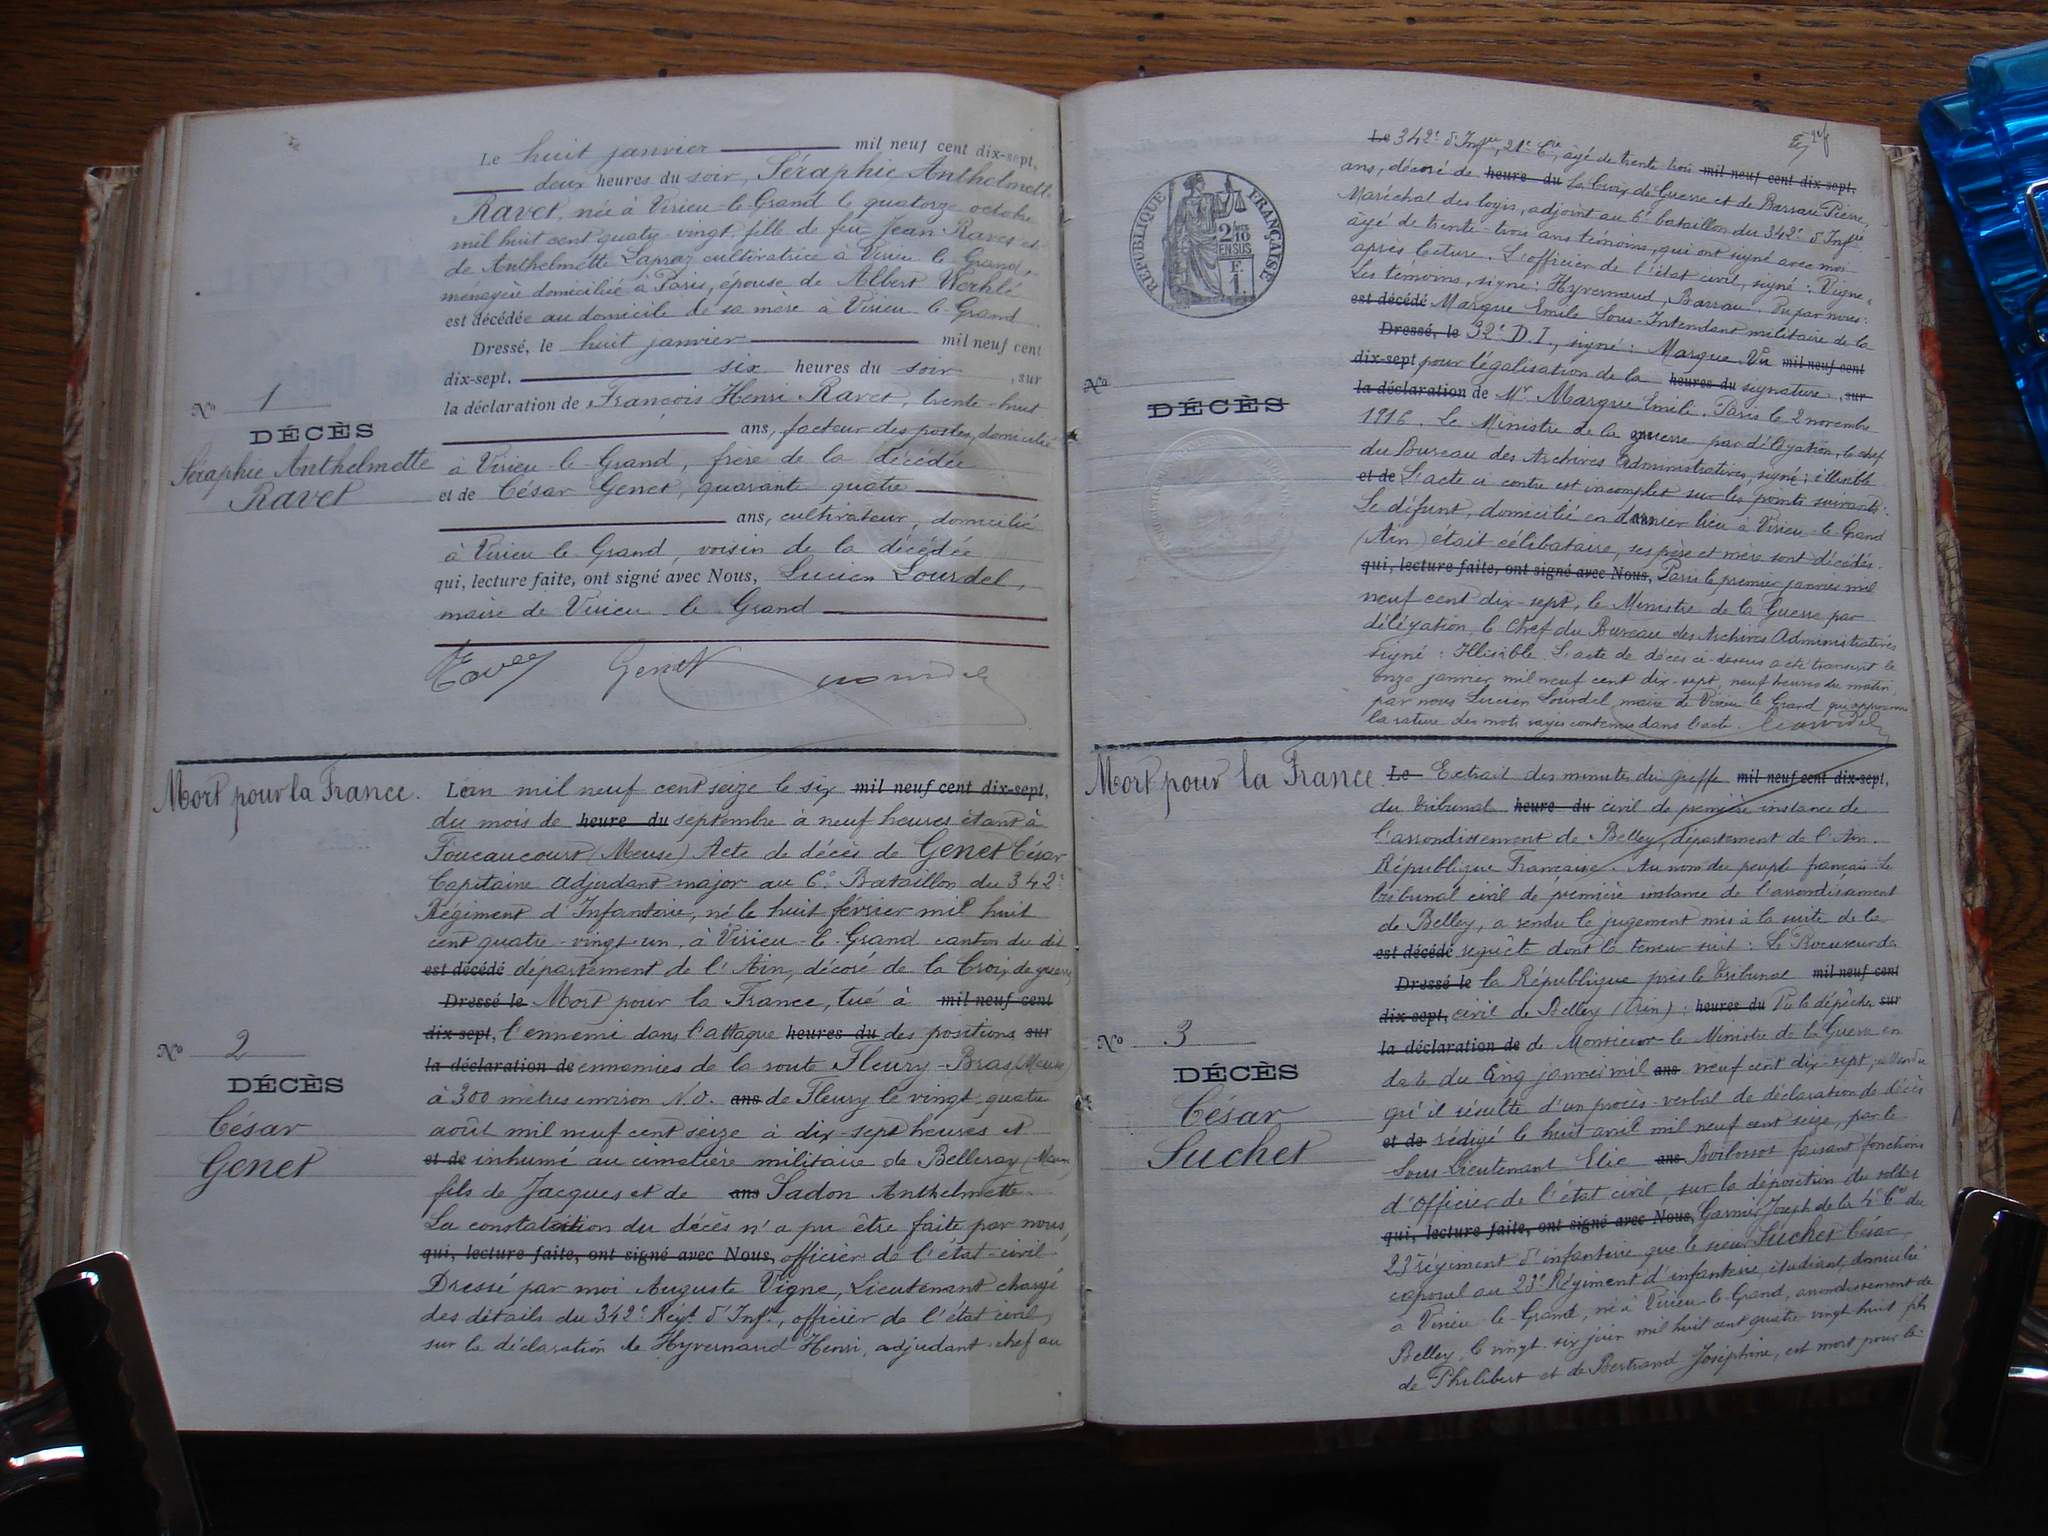 Le huit janvier mil neuf cent dix-sept,
deux heures du soir, Séraphie Anthelmette
Ravet, née à Virieu-le-Grand le quatorze octobre
mil huit cent quatre-vingt, fille de feu Jean Ravet et
de Anthelmette Lapraz cultivatrice à Virieu le Grand,
ménagère domiciliée à Paris, épouse de Albert Werhlé
est décédée au domicile de sa mère à Virieu-le-Grand
Dressé, le huit janvier mil neuf cent
dix-sept, six heures du soir, sur
la déclaration de François Henri Ravet, trente-huit
ans, facteur des postes, domicilié
à Virieu-le-Grand, frère de la décédée
et de César Genet, quarante quatre
ans, cultivateur, domicilié
à Virieu le Grand, voisin de la décédée
qui, lecture faite, ont signé avec Nous, Lucien Lourdel,
maire de Virieu-le-Grand
Genet
No 1
DÉCÈS
Séraphie Anthelmette
Ravet
Mort pour la France.
L'an mil neuf cent seize le six mil neuf cent dix-sept,
du mois de heure du septembre à neuf heures étant à
Foucaucourt (Meuse) Acte de décès de Genet César
Capitaine adjudant-major au 6e Bataillon du 342e
Régiment d'Infanterie, né le huit février mil huit
cent quatre-vingt-un, à Virieu-le-Grand canton du dit
est décédé département de l'Ain, décoré de la Croix de guerre,
Dressé le Mort pour la France, tué à mil neuf cent
dix-sept, l'ennemi dans l'attaque heures du des positions sur
la déclaration de ennemies de la route Fleury-Bras (Meuse)
à 300 mètres environ N.O. ans de Fleury le vingt-quatre
août mil neuf cent seize à dix-sept heures et
et de inhumé au cimetière militaire de Belleray (Meuse)
fils de Jacques et de ans Sadon Anthelmette.
La constatation du décès n'a pu être faite par nous,
qui, lecture faite, ont signé avec Nous, officier de l'état-civil
Dressé par moi Auguste Vigne, Lieutenant chargé
des détails du 342e Régt d'Infie, officier de l'état civil,
sur la déclaration de Hyvernaud Henri, adjudant-chef au
No 2
DÉCÈS
César
Genet
Le 342e d'Infie, 21e Cie, âgé de trente trois mil neuf cent dix-sept,
ans, décoré de heure du la Croix de Guerre et de Barrau Pierre,
Maréchal des logis, adjoint au 6e bataillon du 342e d'Infie
âgé de trente-trois ans témoins, qui ont signé avec moi
après lecture. L'officier de l'état civil, signé : Vigne,
Les témoins, signé : Hyvernaud, Barrau. Vu par nous :
est décédé Marque Emile Sous-Intendant militaire de la
Dressé, le 32e D.I., signé : Marque. Vu mil neuf cent
dix-sept pour légalisation de la heures du signature, sur
la déclaration de de Mr Marque Emile. Paris le 2 novembre
1916. Le Ministre de la guerre par délégation, le chef
du Bureau des Archives Administratives, signé : illisible
et de L'acte ci contre est incomplet sur les points suivants :
Le défunt, domicilié en dernier lieu à Virieu-le-Grand
(Ain) était célibataire, ses père et mère sont décédés.
qui, lecture faite, ont signé avec Nous, Paris le premier janvier mil
neuf cent dix-sept, le Ministre de la Guerre par
délégation, le Chef du Bureau des Archives Administratives
signé : Illisible. L'acte de décès ci-dessus a été transcrit le
onze janvier mil neuf cent dix-sept, neuf heures du matin,
par nous Lucien Lourdel maire de Virieu le Grand qui approuvons
la rature des mots rayés contenus dans l'acte.
RÉPUBLIQUE FRANÇAISE
2/10 EN SUS
F. 1.
No
DÉCÈS
Mort pour la France.
Le Extrait des minutes du greffe mil neuf cent dix-sept,
du tribunal heure du civil de première instance de
l'arrondissement de Belley, département de l'Ain.
République Française. Au nom du peuple français Le
tribunal civil de première instance de l'arrondissement
de Belley, a rendu le jugement mis à la suite de la
est décédé requête dont la teneur suit : Le Procureur de
Dressé le la République près le tribunal mil neuf cent
dix-sept, civil de Belley (Ain) : heures du Vu la dépêche sur
la déclaration de de Monsieur le Ministre de la Guerre en
date du cinq janvier mil ans neuf cent dix-sept, attendu
qu'il résulte d'un procès-verbal de déclaration de décès
et de rédigé le huit avril mil neuf cent seize, par le
Sous Lieutenant Elie ans Boilossot faisant fonctions
d'officier de l'état civil, sur la déposition du soldat
qui, lecture faite, ont signé avec Nous, Garnier Joseph de la 4e Cie du
23e régiment d'infanterie que le sieur Suchet César,
caporal au 23e Régiment d'infanterie, étudiant, domicilié
à Virieu-le-Grand, né à Virieu-le-Grand, arrondissement de
Belley, le vingt-six juin mil huit cent quatre vingt huit fils
de Philibert et de Bertrand Joséphine, est mort pour la
No 3
DÉCÈS
César
Suchet